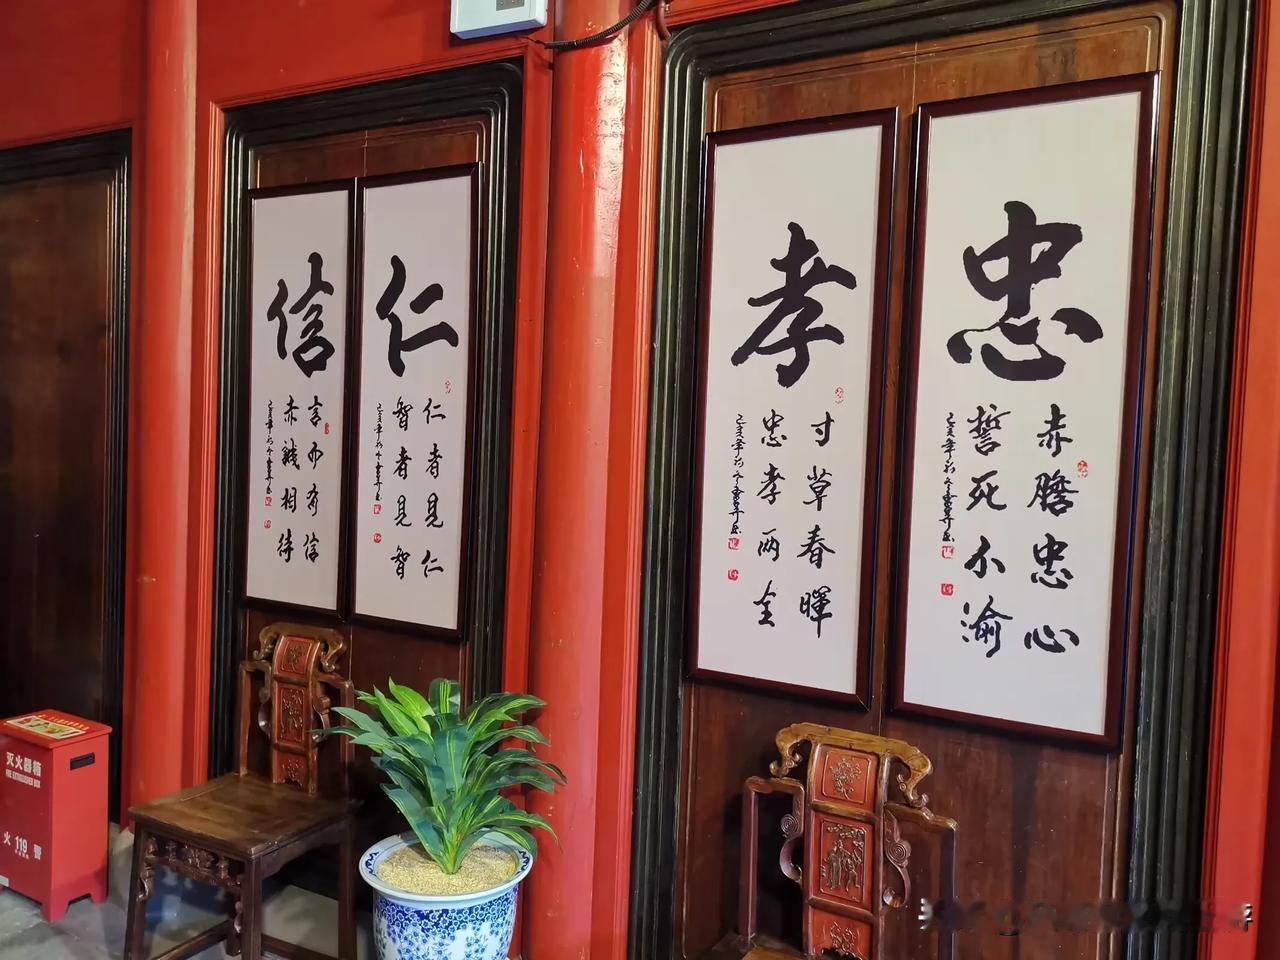 忠
赤膽忠心
誓死不渝
孝
寸草春暉
忠孝兩全
仁
仁者見仁
智者見智
信
言而有信
赤誠相待
灭火器箱
FIRE EXTINGUISHER BOX
火 119 警